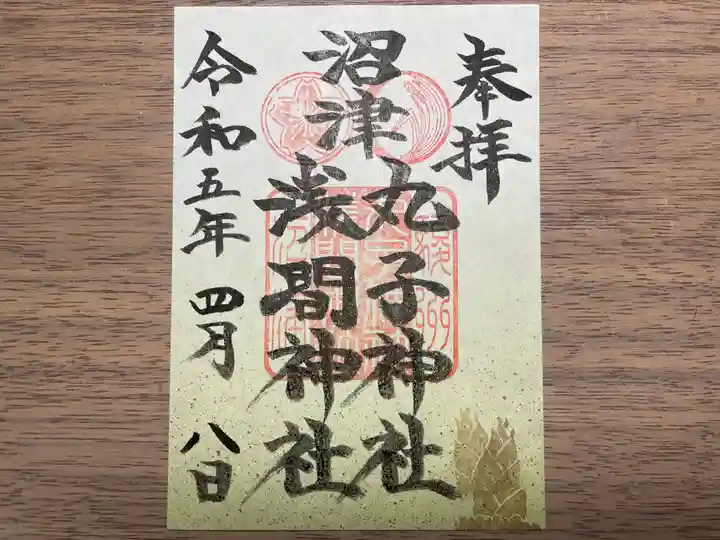 奉拝
沼津
丸子神社
浅間神社
令和五年 四月 八日